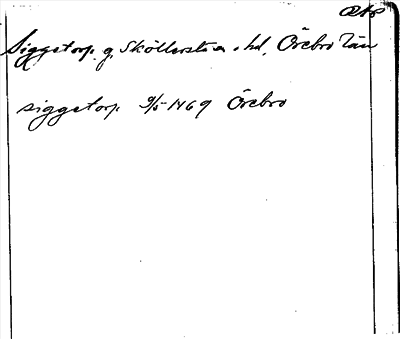 Siggetorp. g. Sköllersta s. hd, Örebro län
siggetorp. 9/5 1469 Örebro